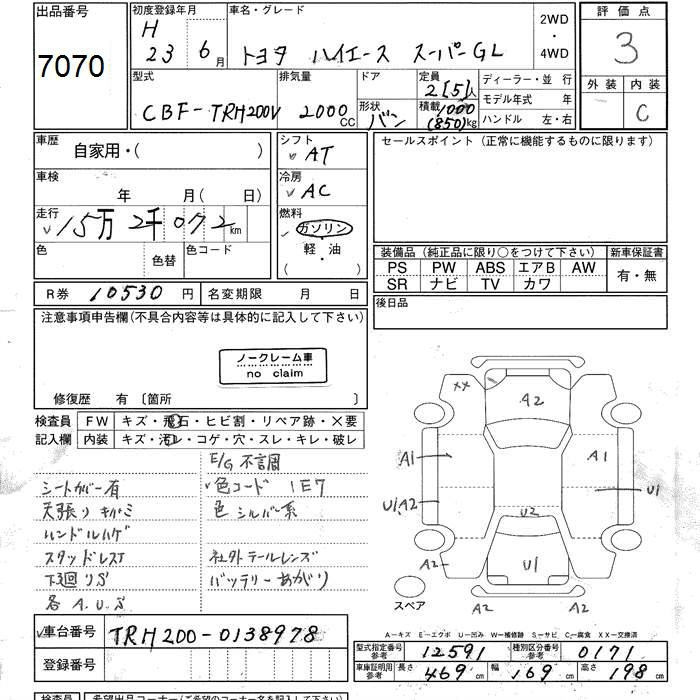 出品番号
7070
初度登録年月
H
23 6月
車名・グレード
トヨタ ハイエース スーパーGL
2WD
・
4WD
評価点
3
外装 内装
C
型式
CBF-TRH200V
排気量
2000cc
ドア
形状
バン
定員
2[5]人
積載 1000
(850)kg
ディーラー・並 行
モデル年式 年
ハンドル 左・右
車歴
自家用・( )
車検
年 月(日)
走行
15万2千072km
色
色替
色コード
シフト
AT
冷房
AC
燃料
ガソリン
軽・油
( ・ )
セールスポイント(正常に機能するものに限ります)
装備品(純正品に限り○をつけて下さい)
新車保証書
PS PW ABS エアB AW
SR ナビ TV カワ
有・無
R券 10530円
名変期限 月 日
後日品
注意事項申告欄(不具合内容等は具体的に記入して下さい)
ノークレーム車
no claim
修復歴 有 〔箇所 〕
検査員 FW キズ・飛石・ヒビ割・リペア跡・×要
記入欄 内装 キズ・汚レ・コゲ・穴・スレ・キレ・破レ
E/G不調
シートカバー有
色コード 1E7
天張りキバミ
色 シルバー系
ハンドルハゲ
スタッドレスT
社外テールレンズ
下廻りS
バッテリーあがり
各A.U.S
XX
A2
A1
A1
U1
U1,A2
U2
A2
U1
A2
A2
A2
スペア
A-キズ E-エクボ U-凹み W-補修跡 S-サビ C-腐食 XX-交換済
車台番号
TRH200-0138978
登録番号
型式指定番号
参考
12591
種別区分番号
参考
0171
車庫証明用
参考
長さ 469cm
幅 169cm
高さ 198cm
検査員
希望出品コーナー(ご希望のコーナー名を記入して下さい)